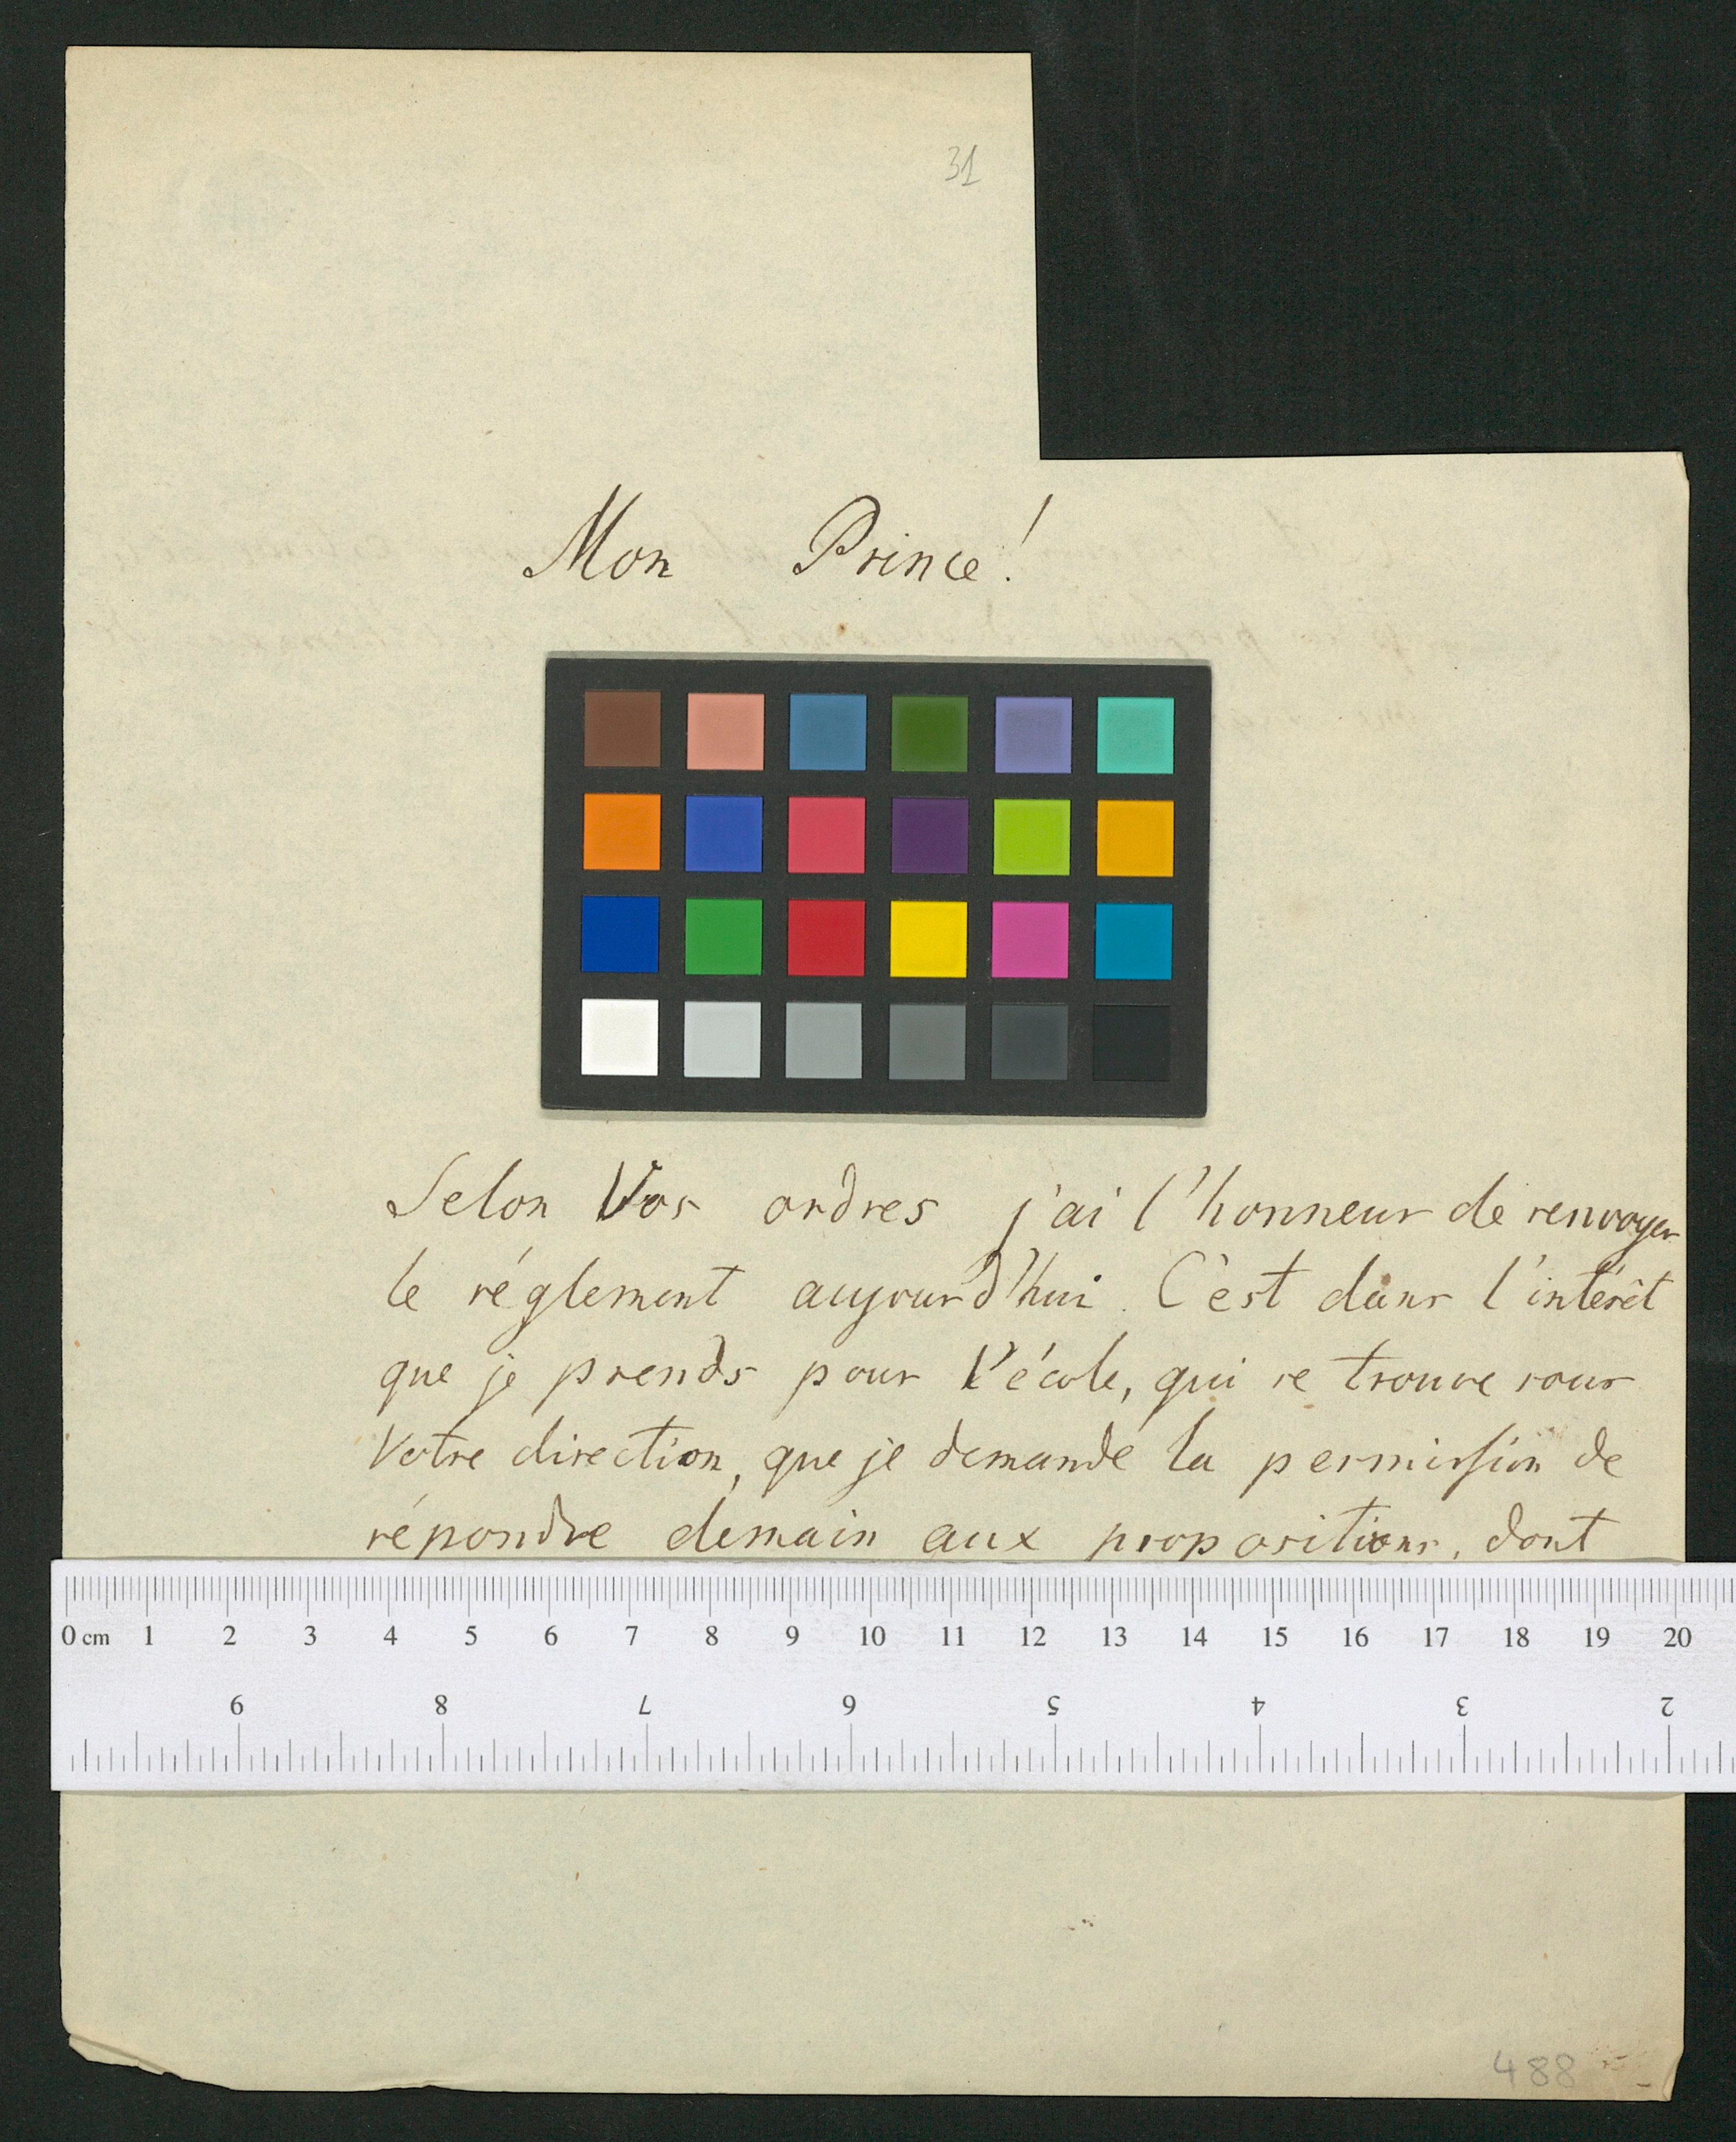 31
Mon Prince!
Selon Vos ordres j'ai l'honneur de renvoyer
le réglement aujourd'hui. C'est dans l'intérêt
que je prends pour l'école, qui se trouve sous
Votre direction, que je demande la permission de
répondre demain aux propositions, dont
0 cm 1 2 3 4 5 6 7 8 9 10 11 12 13 14 15 16 17 18 19 20
9 8 7 6 5 4 3 2
488